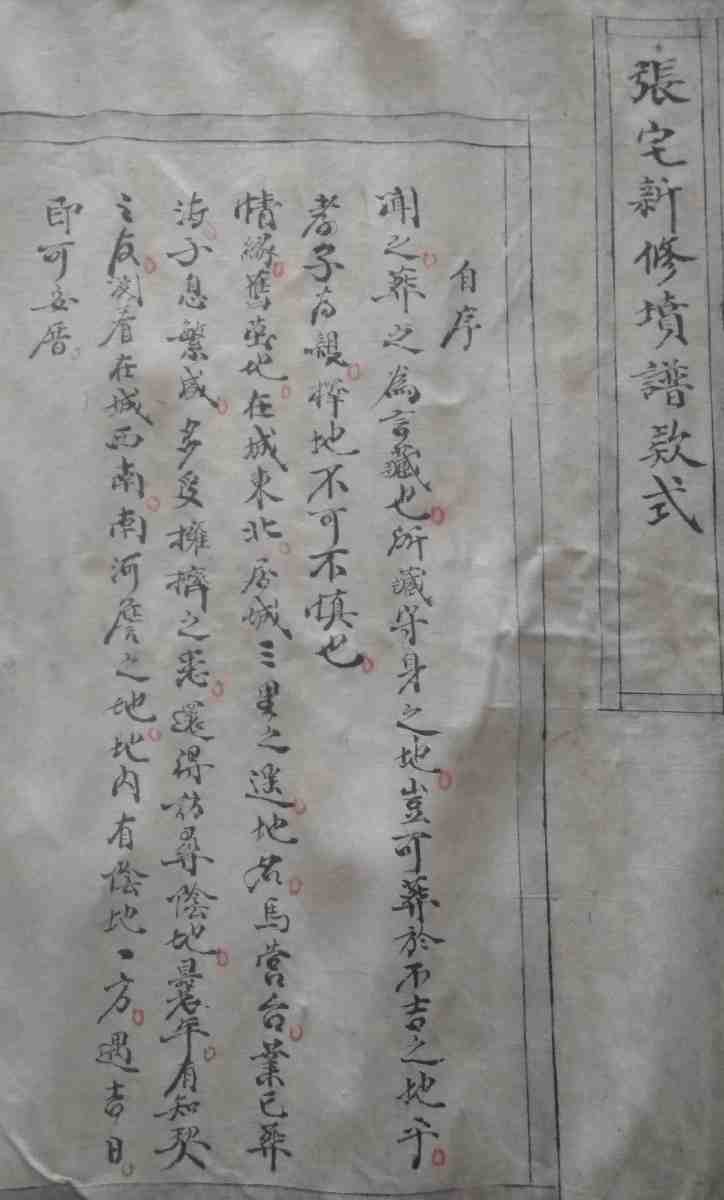 張宅新修墳譜款式
自序
聞之葬之為言藏也所藏守身之地豈可葬於不吉之地乎
孝子為親擇地不可不慎也
情緣舊塋地在城東北居城三里之遥地名馬營台業已葬
海子息繁盛多受擁擠之患還得訪尋陰地曩年有知契
之友閱看在城西南南河詹之地地内有陰地一方遇吉日
即可安厝